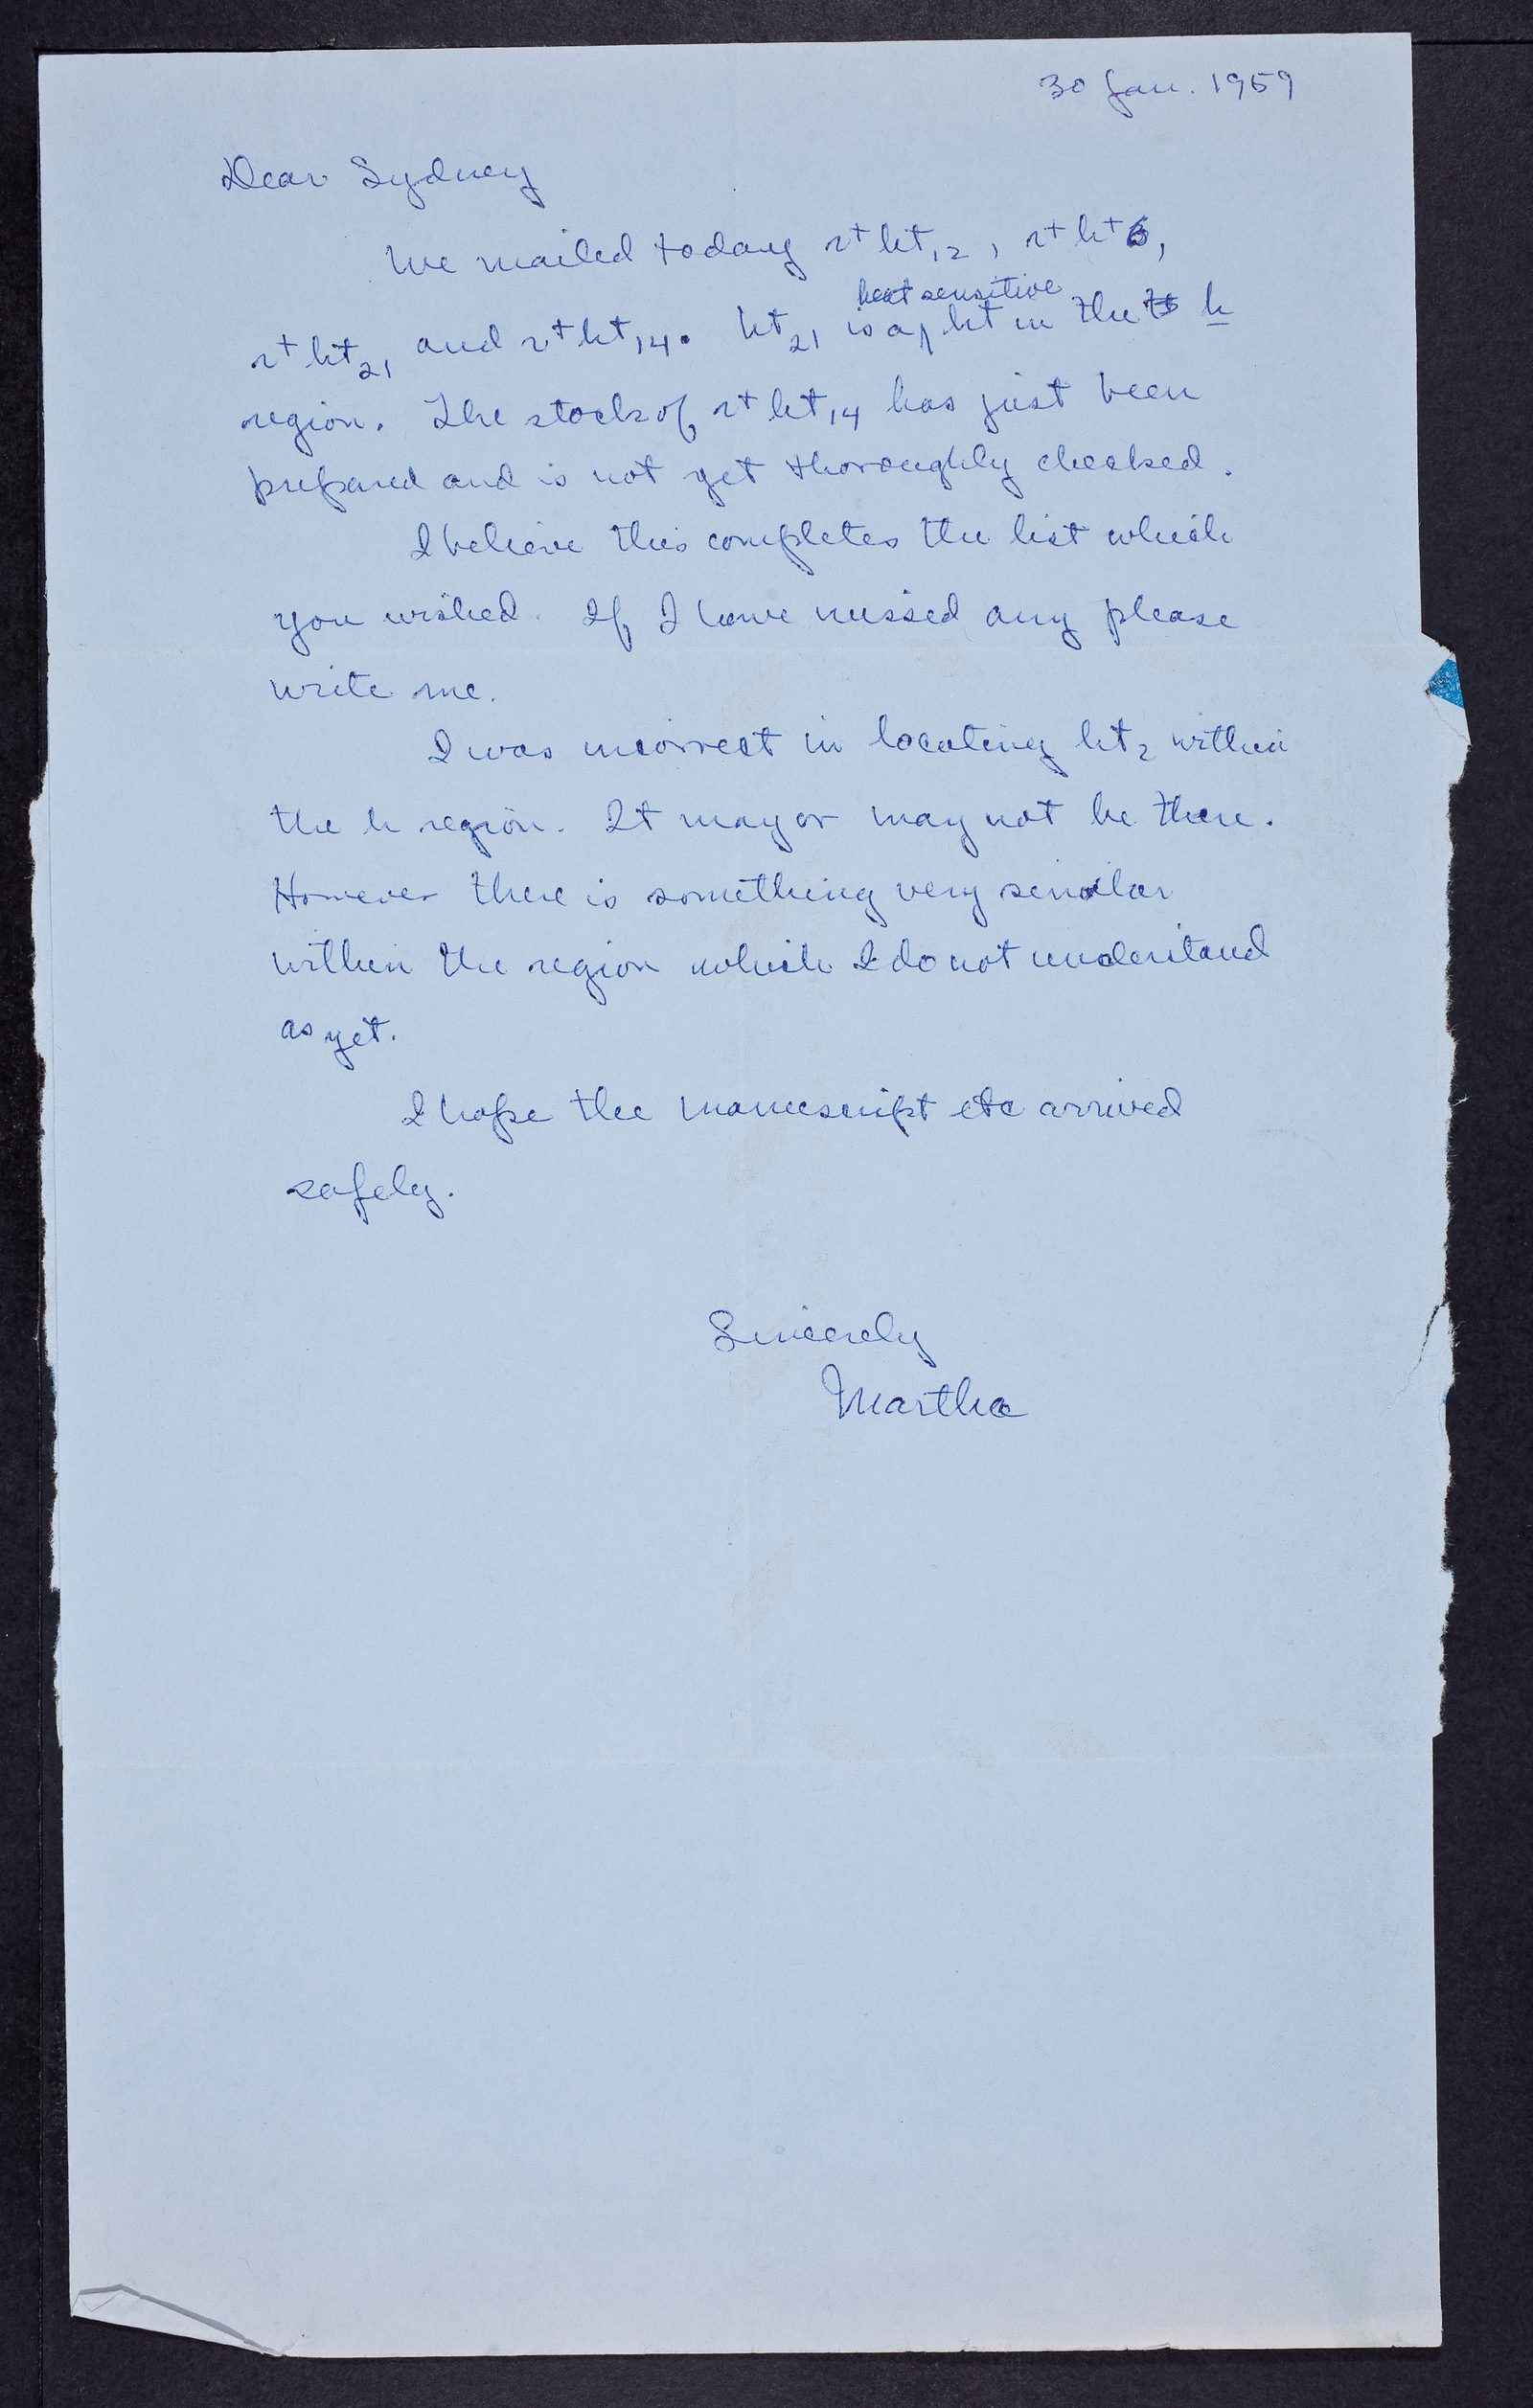 30 Jan. 1959
Dear Sydney
We mailed today r⁺ ht₁₂, r⁺ ht 6,
heat sensitive
r⁺ ht₂₁ and r⁺ ht₁₄. ht₂₁ is a ht in the h
region. The stock of r⁺ ht₁₄ has just been
prepared and is not yet thoroughly checked.
I believe this completes the list which
you wished. If I have missed any please
write me.
I was incorrect in locating ht₂ within
the h region. It may or may not be there.
However there is something very similar
within the region which I do not understand
as yet.
I hope the manuscript etc arrived
safely.
Sincerely
Martha